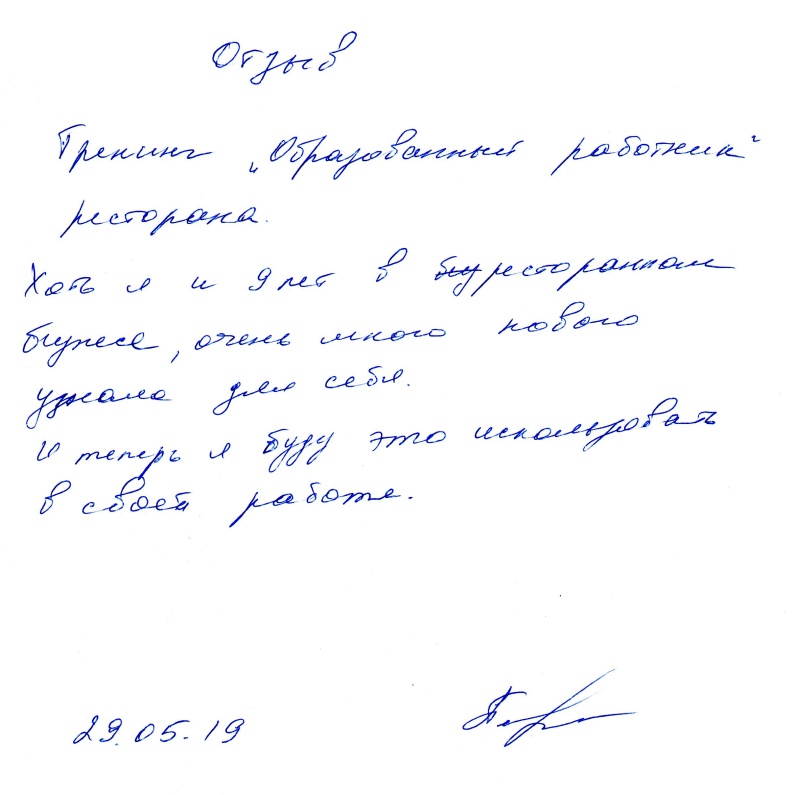 Отзыв
Тренинг „Образованный работник"
ресторана.
Хоть я и 9 лет в ресторанном
бизнесе, очень много нового
узнала для себя.
И теперь я буду это использовать
в своей работе.
29.05.19